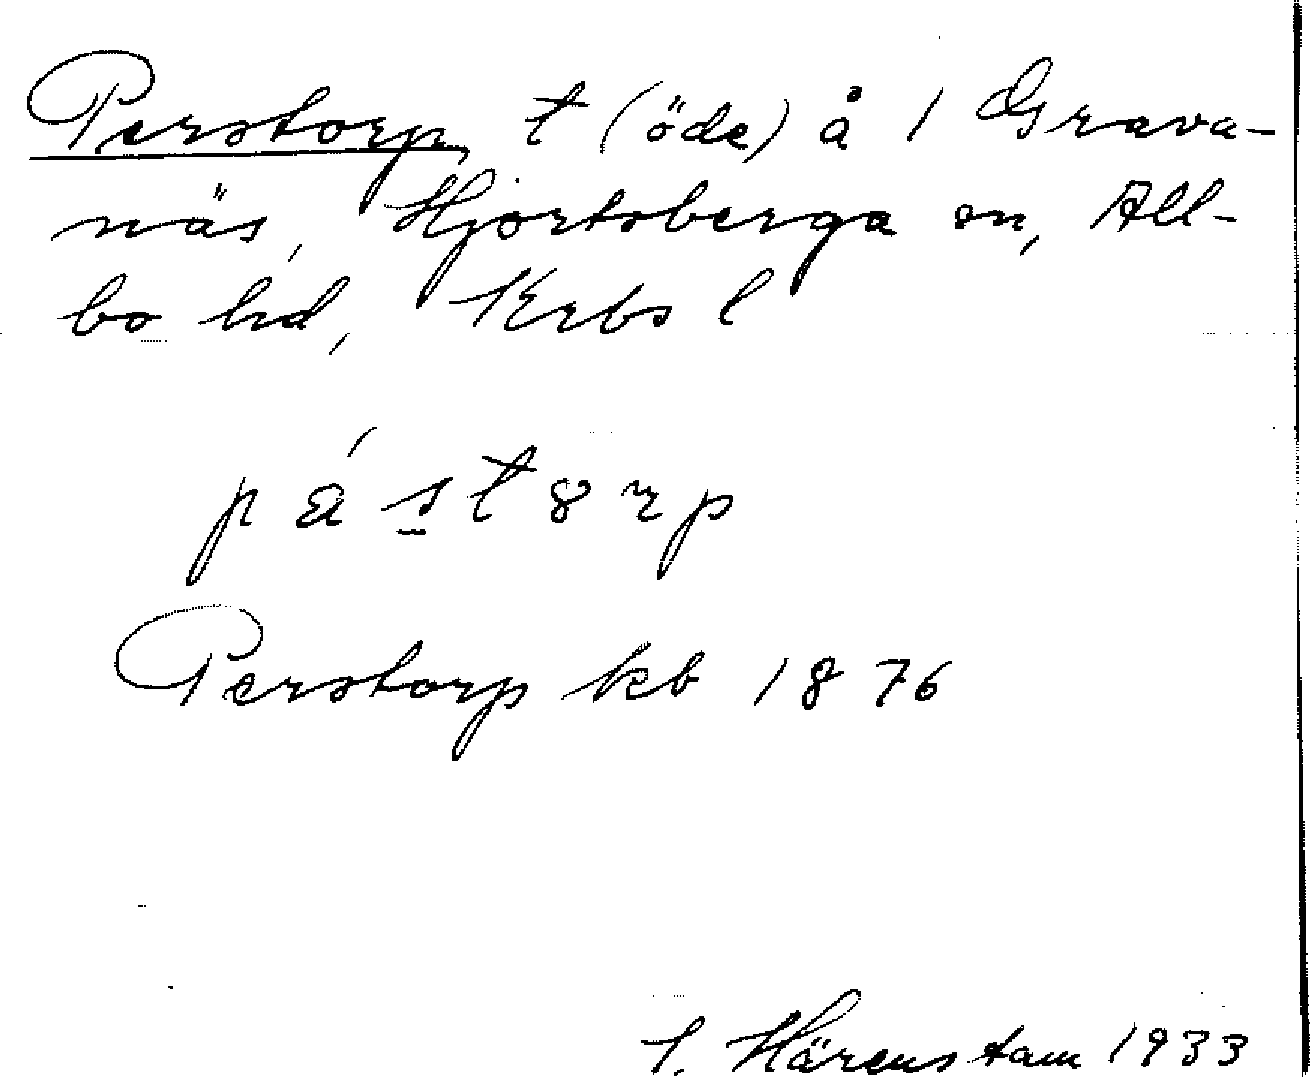 Perstorp t (öde) å 1 Grava-
näs, Hjortsberga sn, All-
bo hd, Krbs l
Perstorp kb 1876
Härenstam 1933